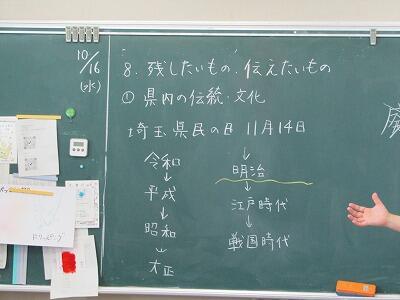 10/16
(水)
8. 残したいもの、伝えたいもの
① 県内の伝統・文化
埼玉県民の日 11月14日
令和
↓
平成
↓
昭和
↓
大正
↓
明治
↓
江戸時代
↓
戦国時代
ドリッピング